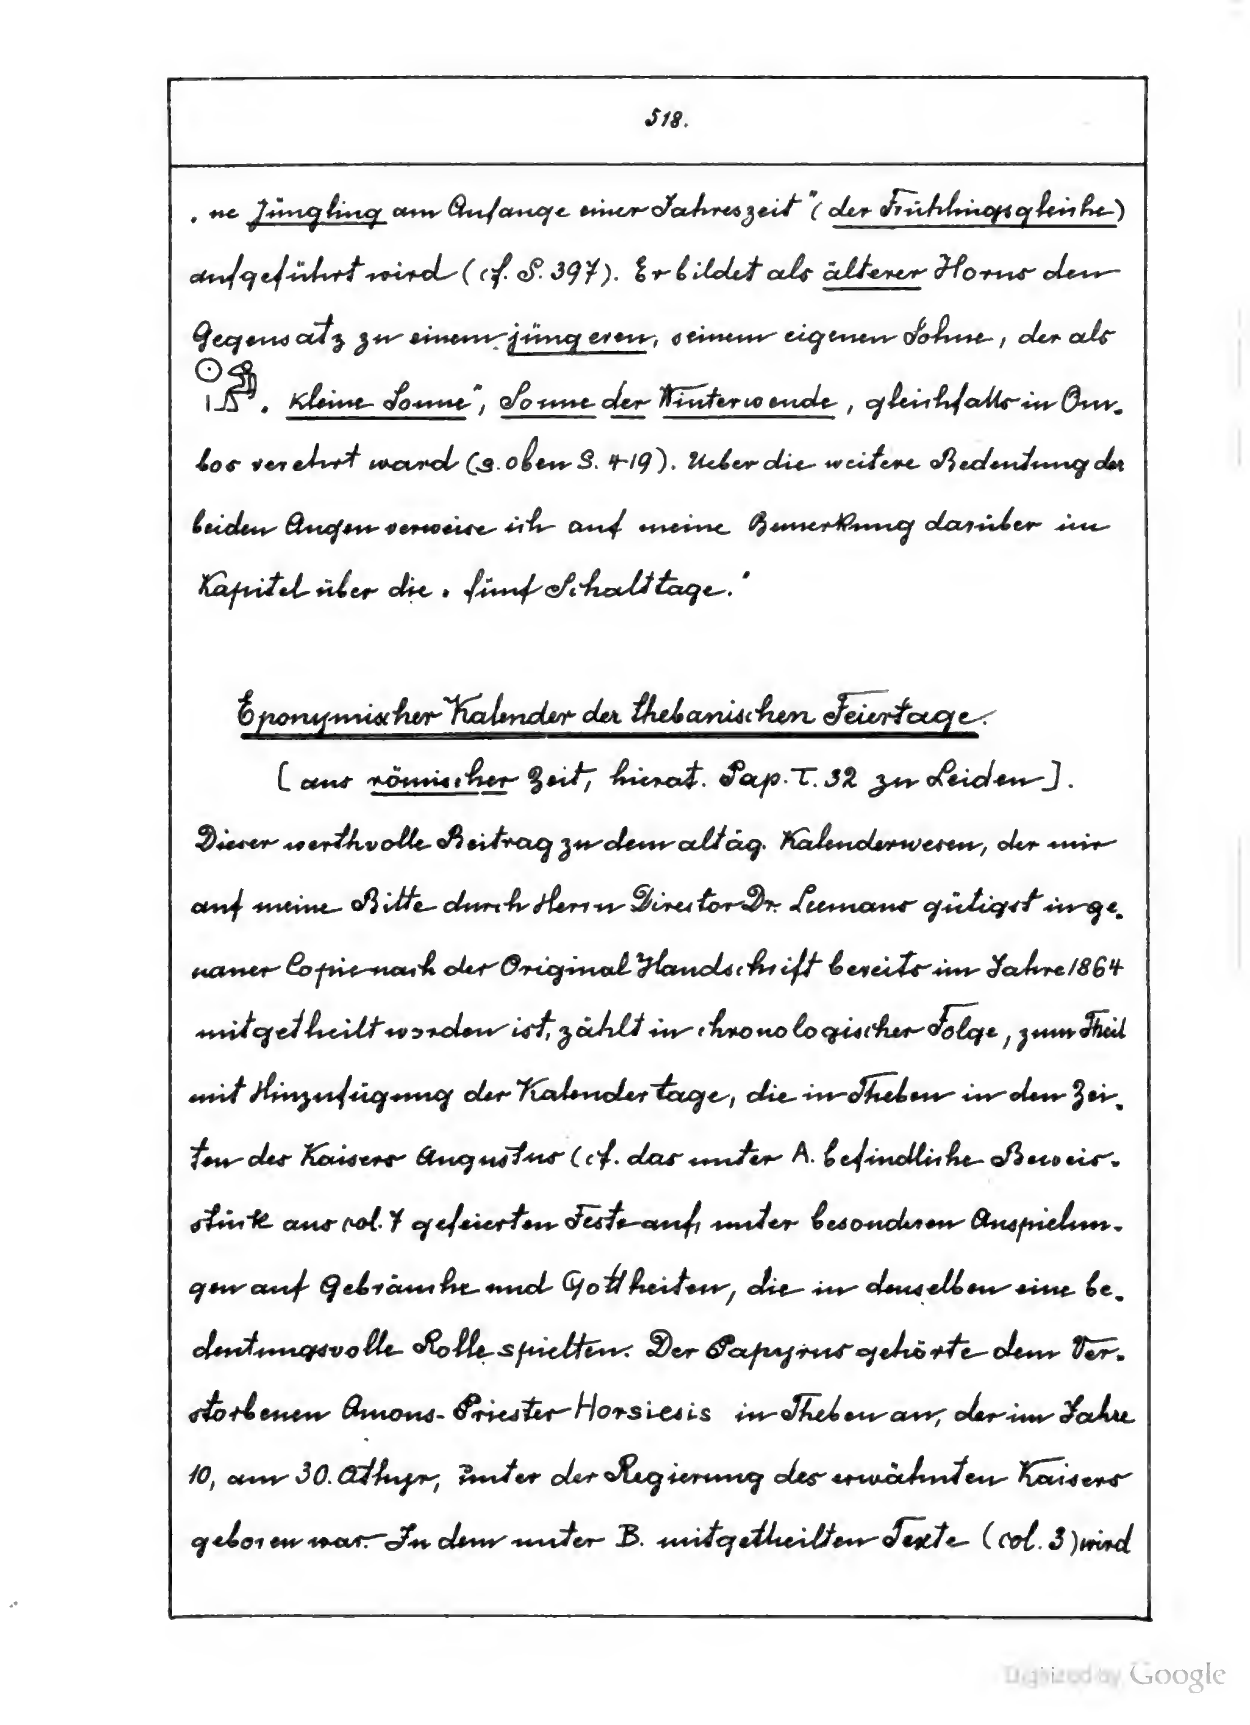 518.
„ne Jüngling am Anfange einer Jahreszeit" (der Frühlingsgleiche)
aufgeführt wird (cf. S. 397). Er bildet als älterer Horus den
Gegensatz zu einem jüngeren, seinem eigenen Sohne, der als
„kleine Sonne", Sonne der Winterwende, gleichfalls in Om-
bos verehrt ward (s. oben S. 419). Ueber die weitere Bedeutung der
beiden Augen verweise ich auf meine Bemerkung darüber im
Kapitel über die „fünf Schalttage."
Eponymischer Kalender der thebanischen Feiertage.
[aus römischer Zeit, hierat. Pap. T. 32 zu Leiden].
Dieser werthvolle Beitrag zu dem altäg. Kalenderwesen, der mir
auf meine Bitte durch Herrn Director Dr. Leemans gütigst in ge-
nauer Copie nach der Original Handschrift bereits im Jahre 1864
mitgetheilt worden ist, zählt in chronologischer Folge, zum Theil
mit Hinzufügung der Kalendertage, die in Theben in den Zei-
ten des Kaisers Augustus (cf. das unter A. befindliche Beweis-
stück aus col. 7 gefeierten Feste auf, unter besonderen Anspielun-
gen auf Gebräuche und Gottheiten, die in denselben eine be-
deutungsvolle Rolle spielten. Der Papyrus gehörte dem Ver-
storbenen Amons-Priester Horsiesis in Theben an, der im Jahre
10, am 30. Athyr, unter der Regierung des erwähnten Kaisers
geboren war. In dem unter B. mitgetheilten Texte (col. 3) wird
Digitized by Google